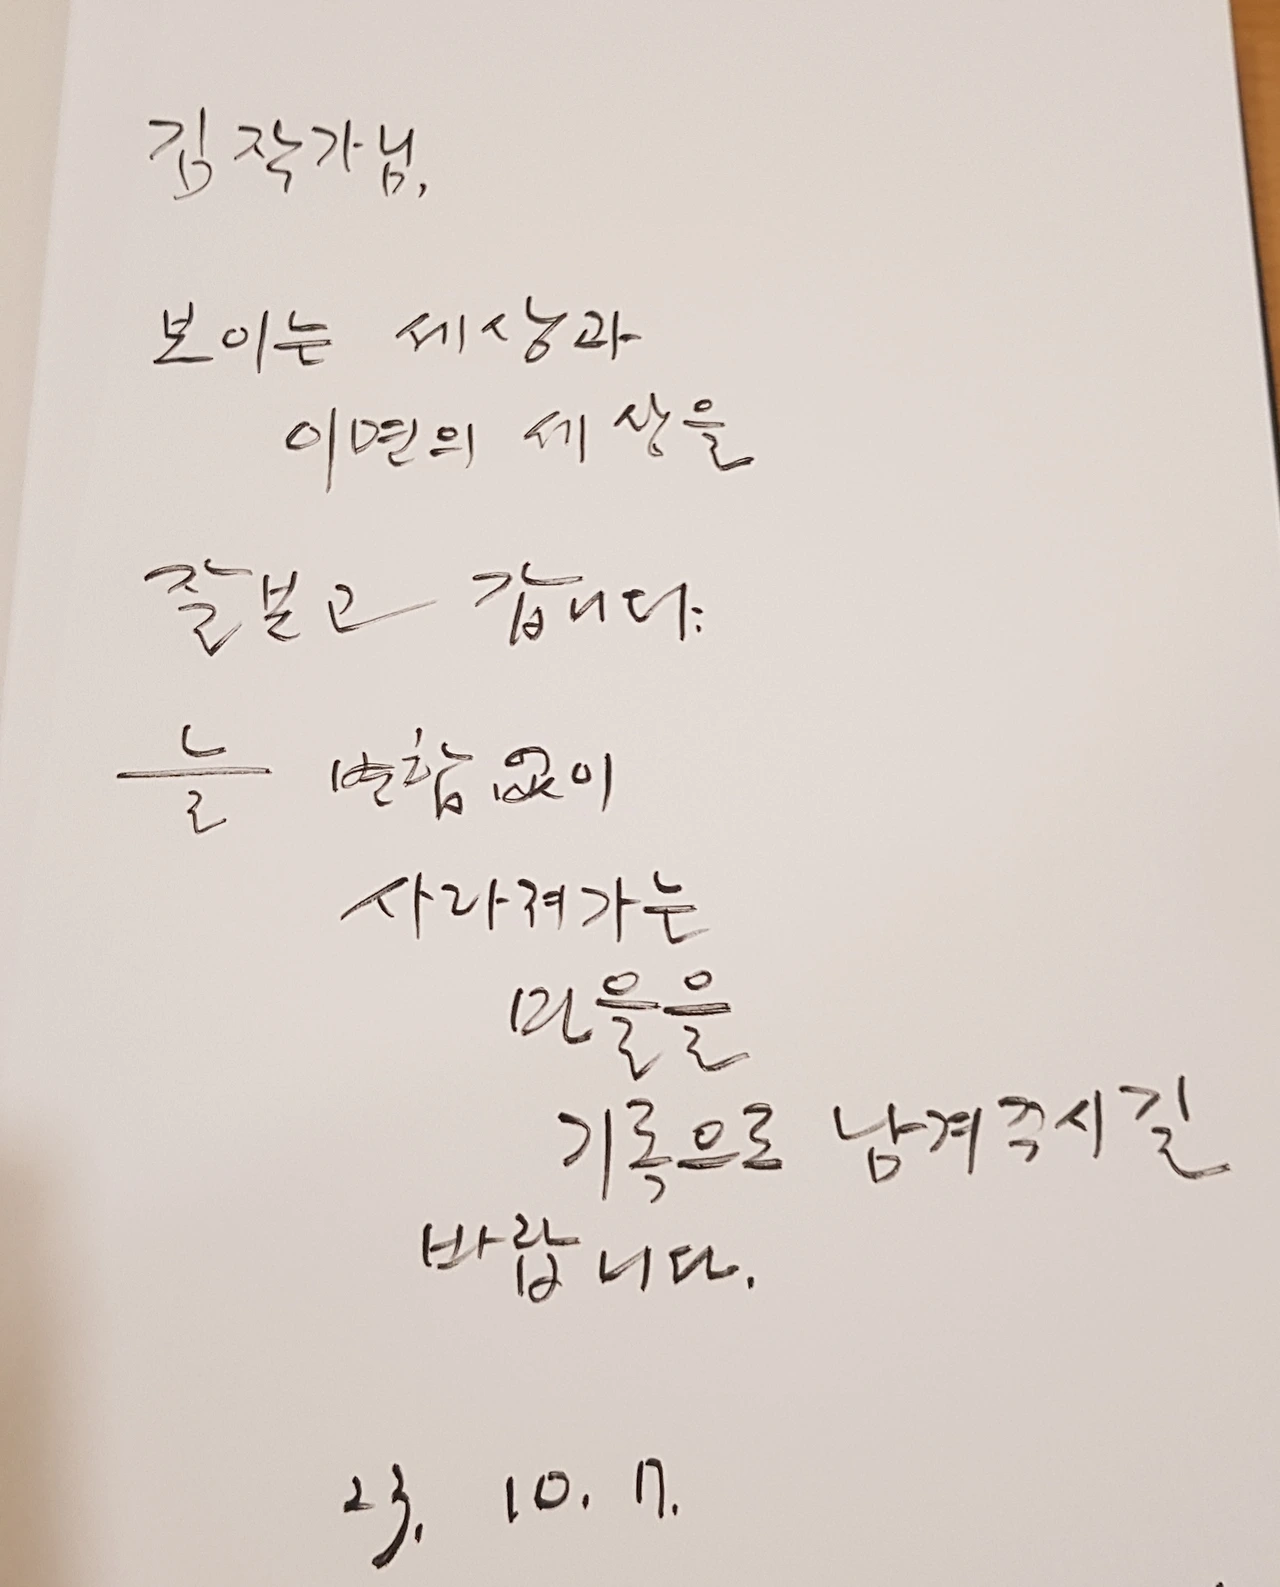 김작가님,
보이는 세상과
이면의 세상을
잘보고 갑니다.
늘 변함없이
사라져가는
것들을
기록으로 남겨주시길
바랍니다.
23. 10. 7.